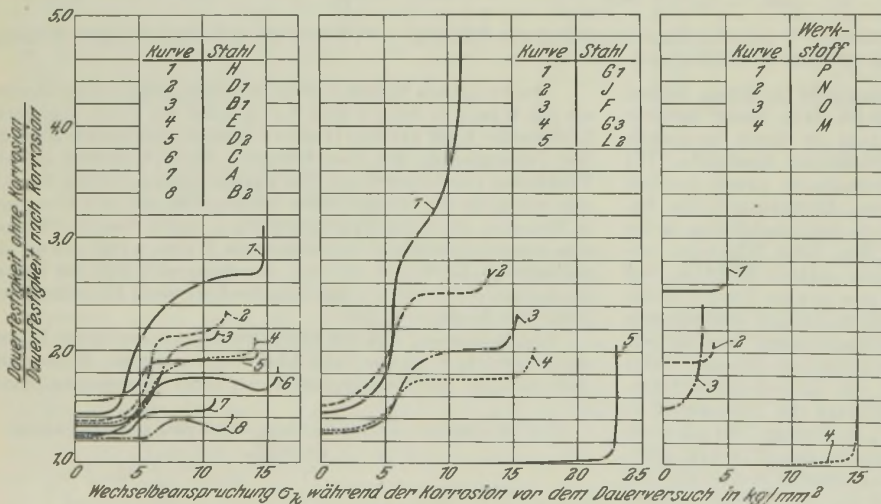 Dauerfestigkeit ohne Korrosion
Dauerfestigkeit nach Korrosion
5,0
4,0
3,0
2,0
1,0
Kurve Stahl
1 H
2 D1
3 B1
4 E
5 D2
6 C
7 A
8 B2
1
2
3
4
5
6
7
8
0 5 10 15
Kurve Stahl
1 G1
2 J
3 F
4 G3
5 L2
1
2
3
4
5
0 5 10 15 20 25
Kurve Werk-
stoff
1 P
2 N
3 O
4 M
1
2
3
4
0 5 10 15
Wechselbeanspruchung σk während der Korrosion vor dem Dauerversuch in kg/mm²